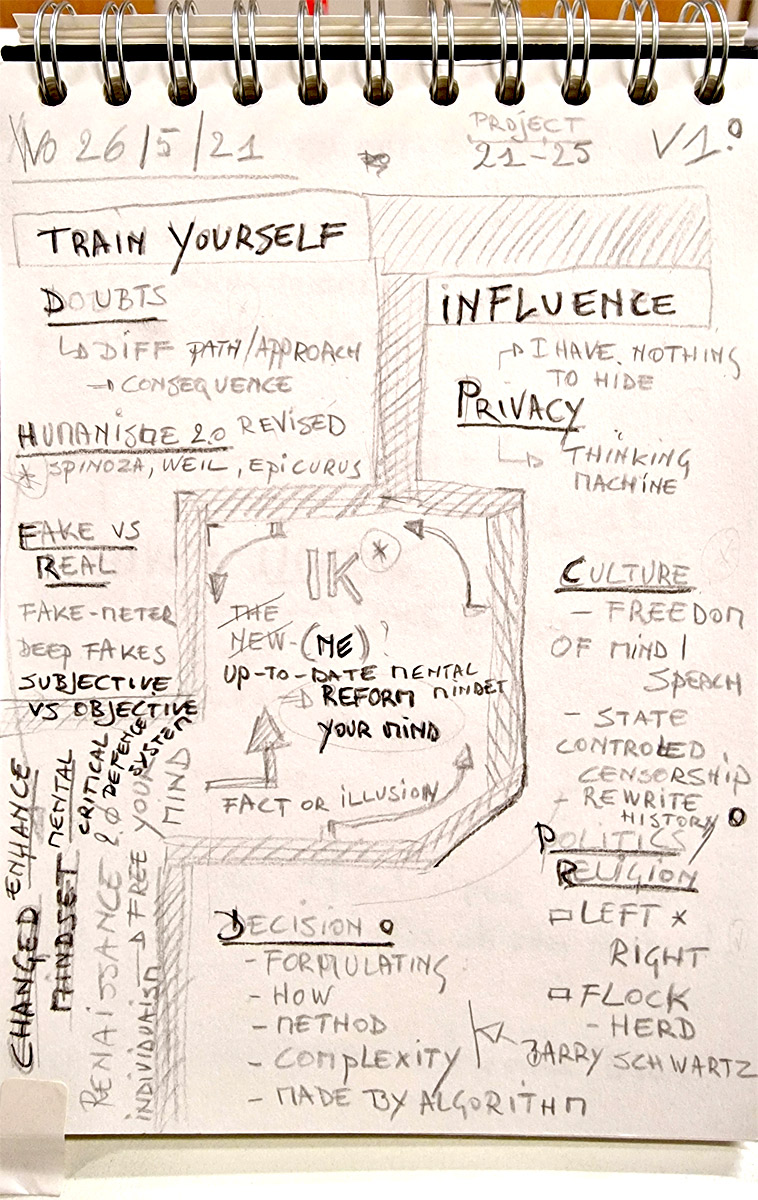 Wo 26/5/21
PROJECT
21-25
V1.0
TRAIN YOURSELF
DOUBTS
DIFF PATH/APPROACH
CONSEQUENCE
HUMANISME 2.0 REVISED
* SPINOZA, WEIL, EPICURUS
FAKE VS
REAL
FAKE-METER
DEEP FAKES
SUBJECTIVE
VS OBJECTIVE
INFLUENCE
I HAVE NOTHING
TO HIDE
PRIVACY
THINKING
MACHINE
IK *
THE
NEW-(ME)?
UP-TO-DATE MENTAL
MINDET
REFORM
YOUR MIND
FACT OR ILLUSION
CULTURE
- FREEDOM
OF MIND/
SPEACH
- STATE
CONTROLED
CENSORSHIP
- REWRITE
HISTORY
POLITICS/
RELIGION
LEFT *
RIGHT
FLOCK
- HERD
BARRY SCHWARTZ
CHANGED
ENHANCE
MINDSET
MENTAL
CRITICAL
DEFENCE
SYSTEM
RENAISSANCE 2.0
INDIVIDUAISM
FREE YOUR
MIND
DECISION
- FORMULATING
- HOW
- METHOD
- COMPLEXITY
- MADE BY ALGORITHM